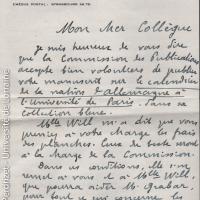 Mon cher Collègue
Je suis heureux de vous dire
que la Commission des Publications
accepte bien volontiers de publier
votre manuscrit sur le calendrier
de la nation d'allemagne à
l'Université de Paris. Dans sa
collection bleue.
Mlle Will m'a dit que vous
preniez à votre charge les frais
des planches. Ceux de texte seront
à la charge de la Commission.
Dans ces conditions, elle s'en
remet à vous et à Mlle Will,
que pourra aider M. Grabar,
pour tout ce qui concerne les
Université de Lorraine